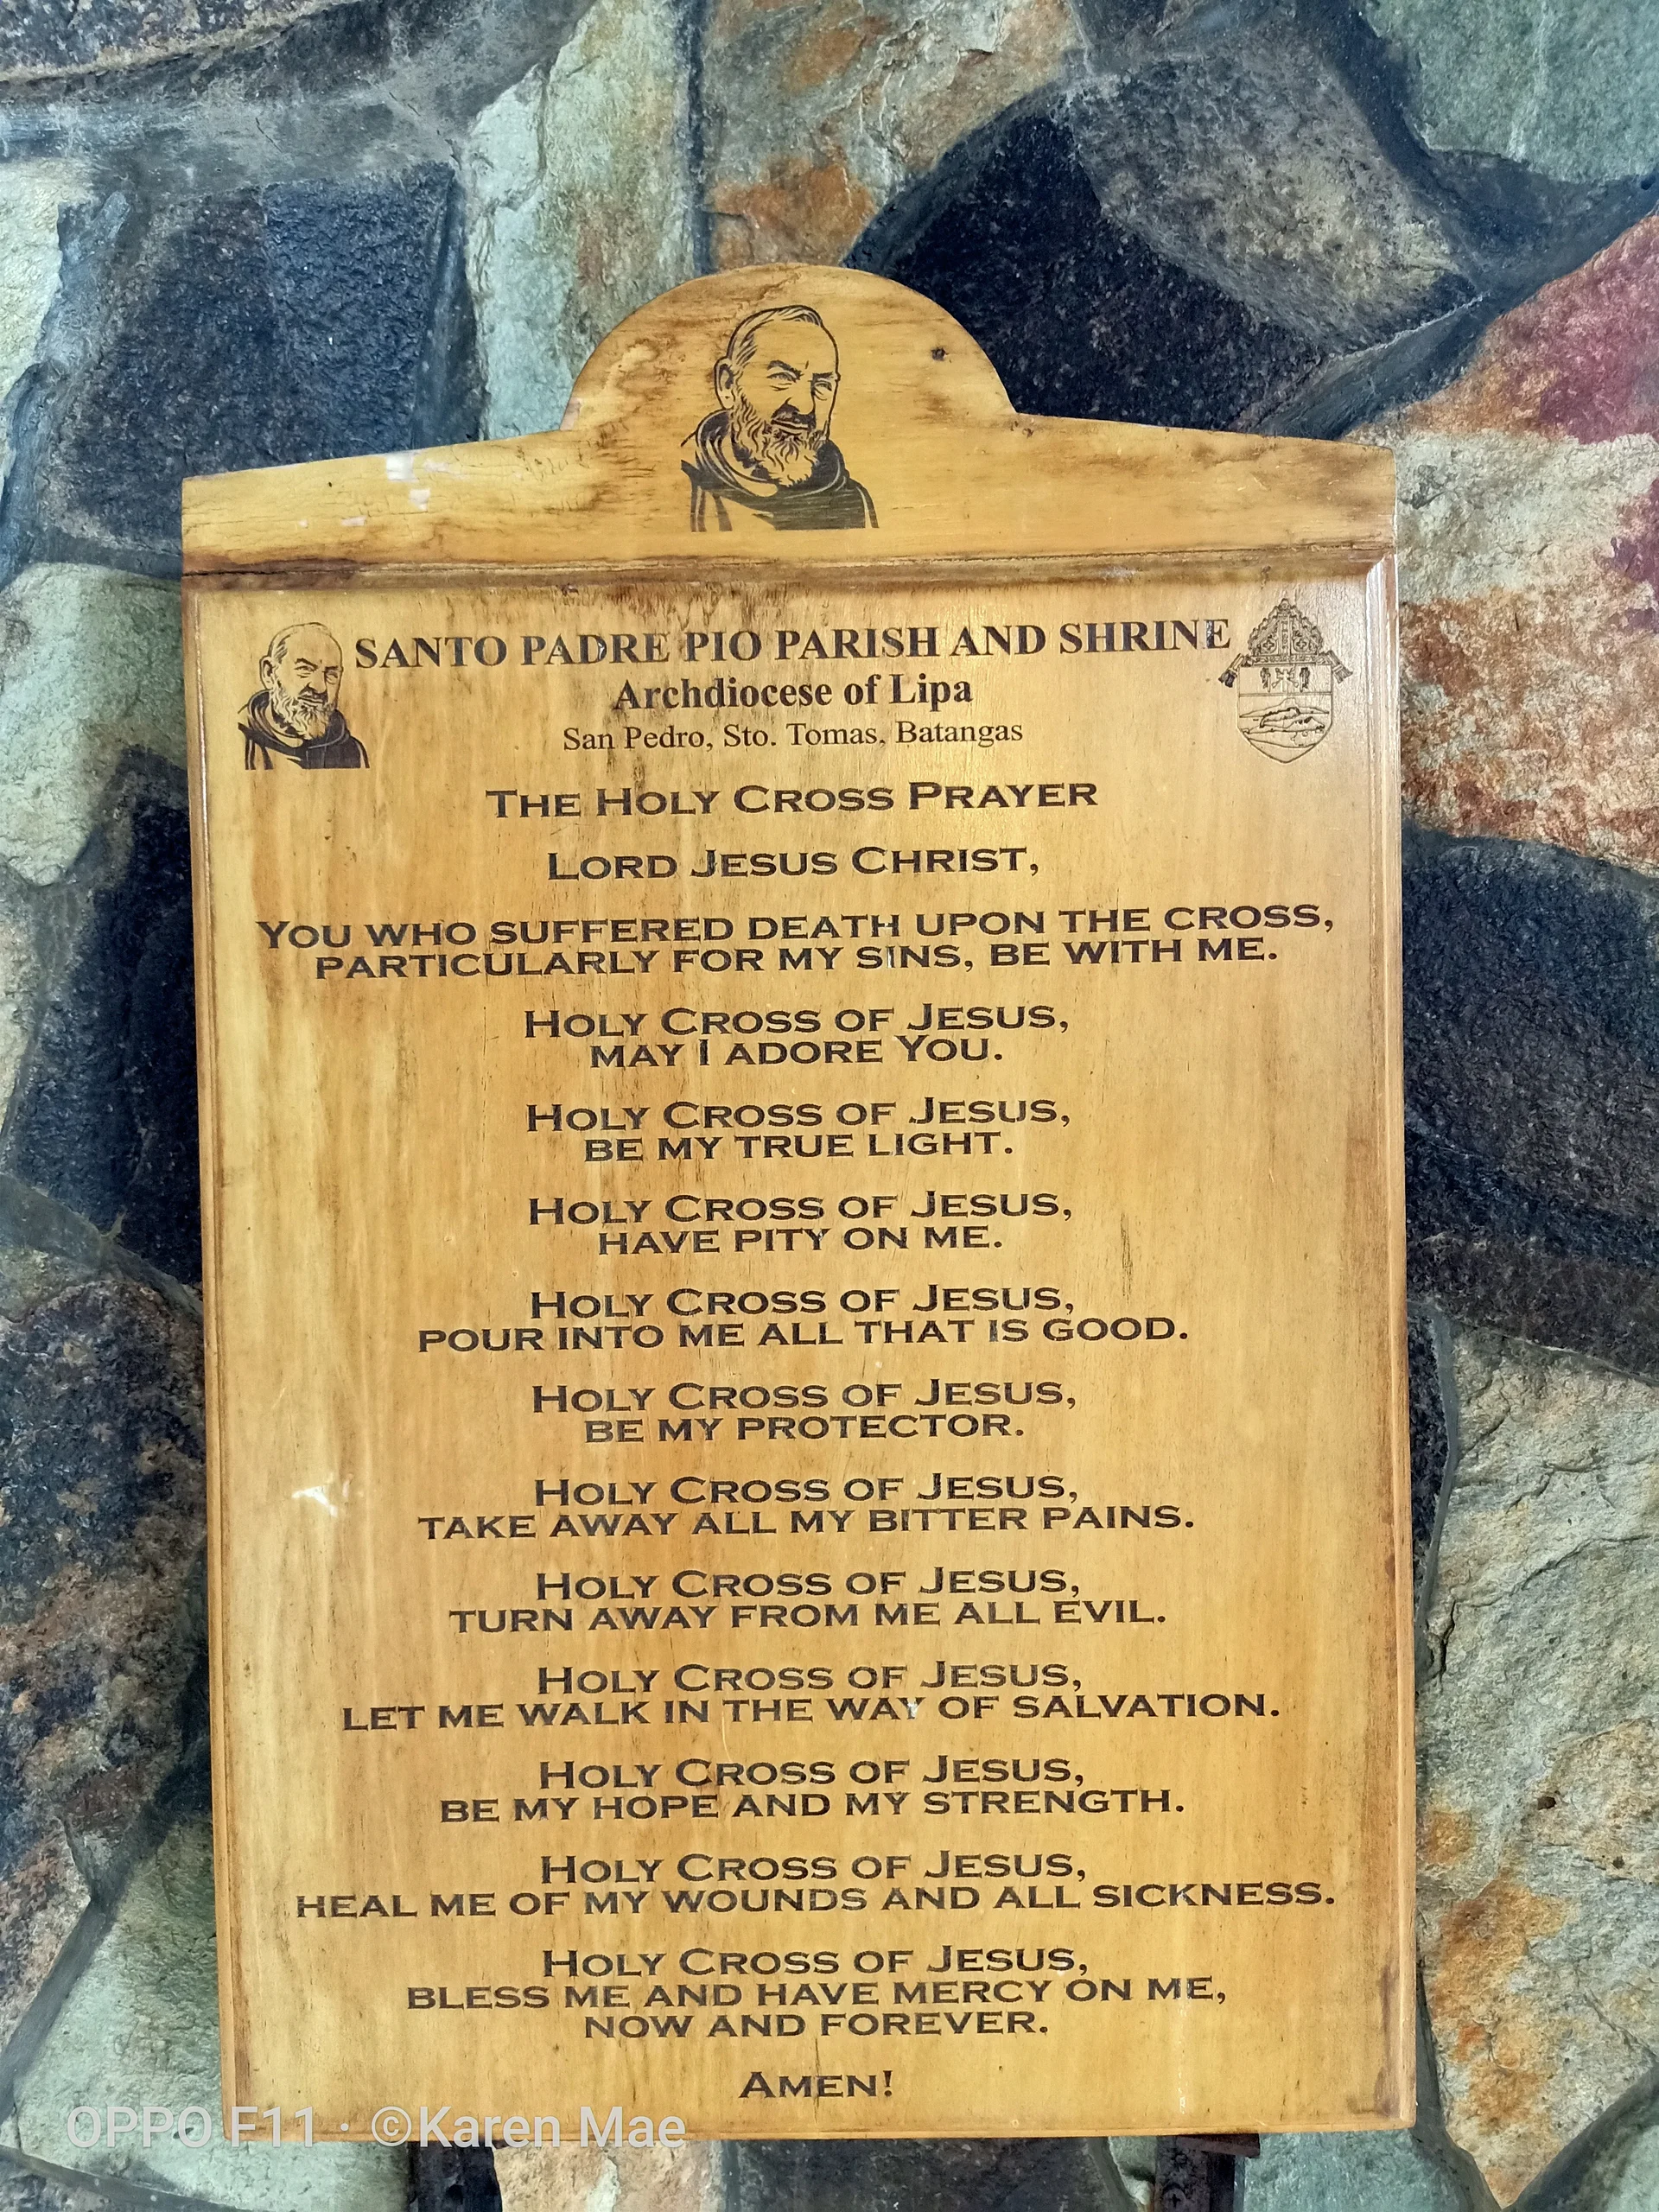 SANTO PADRE PIO PARISH AND SHRINE
Archdiocese of Lipa
San Pedro, Sto. Tomas, Batangas
THE HOLY CROSS PRAYER
LORD JESUS CHRIST,
YOU WHO SUFFERED DEATH UPON THE CROSS,
PARTICULARLY FOR MY SINS, BE WITH ME.
HOLY CROSS OF JESUS,
MAY I ADORE YOU.
HOLY CROSS OF JESUS,
BE MY TRUE LIGHT.
HOLY CROSS OF JESUS,
HAVE PITY ON ME.
HOLY CROSS OF JESUS,
POUR INTO ME ALL THAT IS GOOD.
HOLY CROSS OF JESUS,
BE MY PROTECTOR.
HOLY CROSS OF JESUS,
TAKE AWAY ALL MY BITTER PAINS.
HOLY CROSS OF JESUS,
TURN AWAY FROM ME ALL EVIL.
HOLY CROSS OF JESUS,
LET ME WALK IN THE WAY OF SALVATION.
HOLY CROSS OF JESUS,
BE MY HOPE AND MY STRENGTH.
HOLY CROSS OF JESUS,
HEAL ME OF MY WOUNDS AND ALL SICKNESS.
HOLY CROSS OF JESUS,
BLESS ME AND HAVE MERCY ON ME,
NOW AND FOREVER.
AMEN!
OPPO F11 · ©Karen Mae